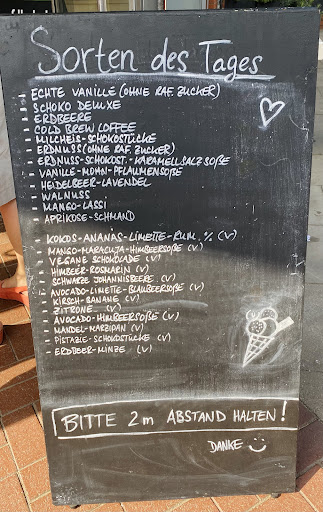 Sorten des Tages
- ECHTE VANILLE (OHNE RAF. ZUCKER)
- SCHOKO DELUXE
- ERDBEERE
- COLD BREW COFFEE
- MILCHEIS-SCHOKOSTÜCKE
- ERDNUSS (OHNE RAF. ZUCKER)
- ERDNUSS-SCHOKOST.-KARAMELLSALZSOßE
- VANILLE-MOHN-PFLAUMENSOßE
- HEIDELBEER-LAVENDEL
- WALNUSS
- MANGO-LASSI
- APRIKOSE-SCHMAND
- KOKOS-ANANAS-LIMETTE-RUM, % (V)
- MANGO-MARACUJA-HIMBEERSOßE (V)
- VEGANE SCHOKOLADE (V)
- HIMBEER-ROSMARIN (V)
- SCHWARZE JOHANNISBEERE (V)
- AVOCADO-LIMETTE-BLAUBEERSOßE (V)
- KIRSCH-BANANE (V)
- ZITRONE (V)
- AVOCADO-HIMBEERSOßE (V)
- MANDEL-MARZIPAN (V)
- PISTAZIE-SCHOKOSTÜCKE (V)
- ERDBEER-MINZE (V)
BITTE 2m ABSTAND HALTEN!
DANKE